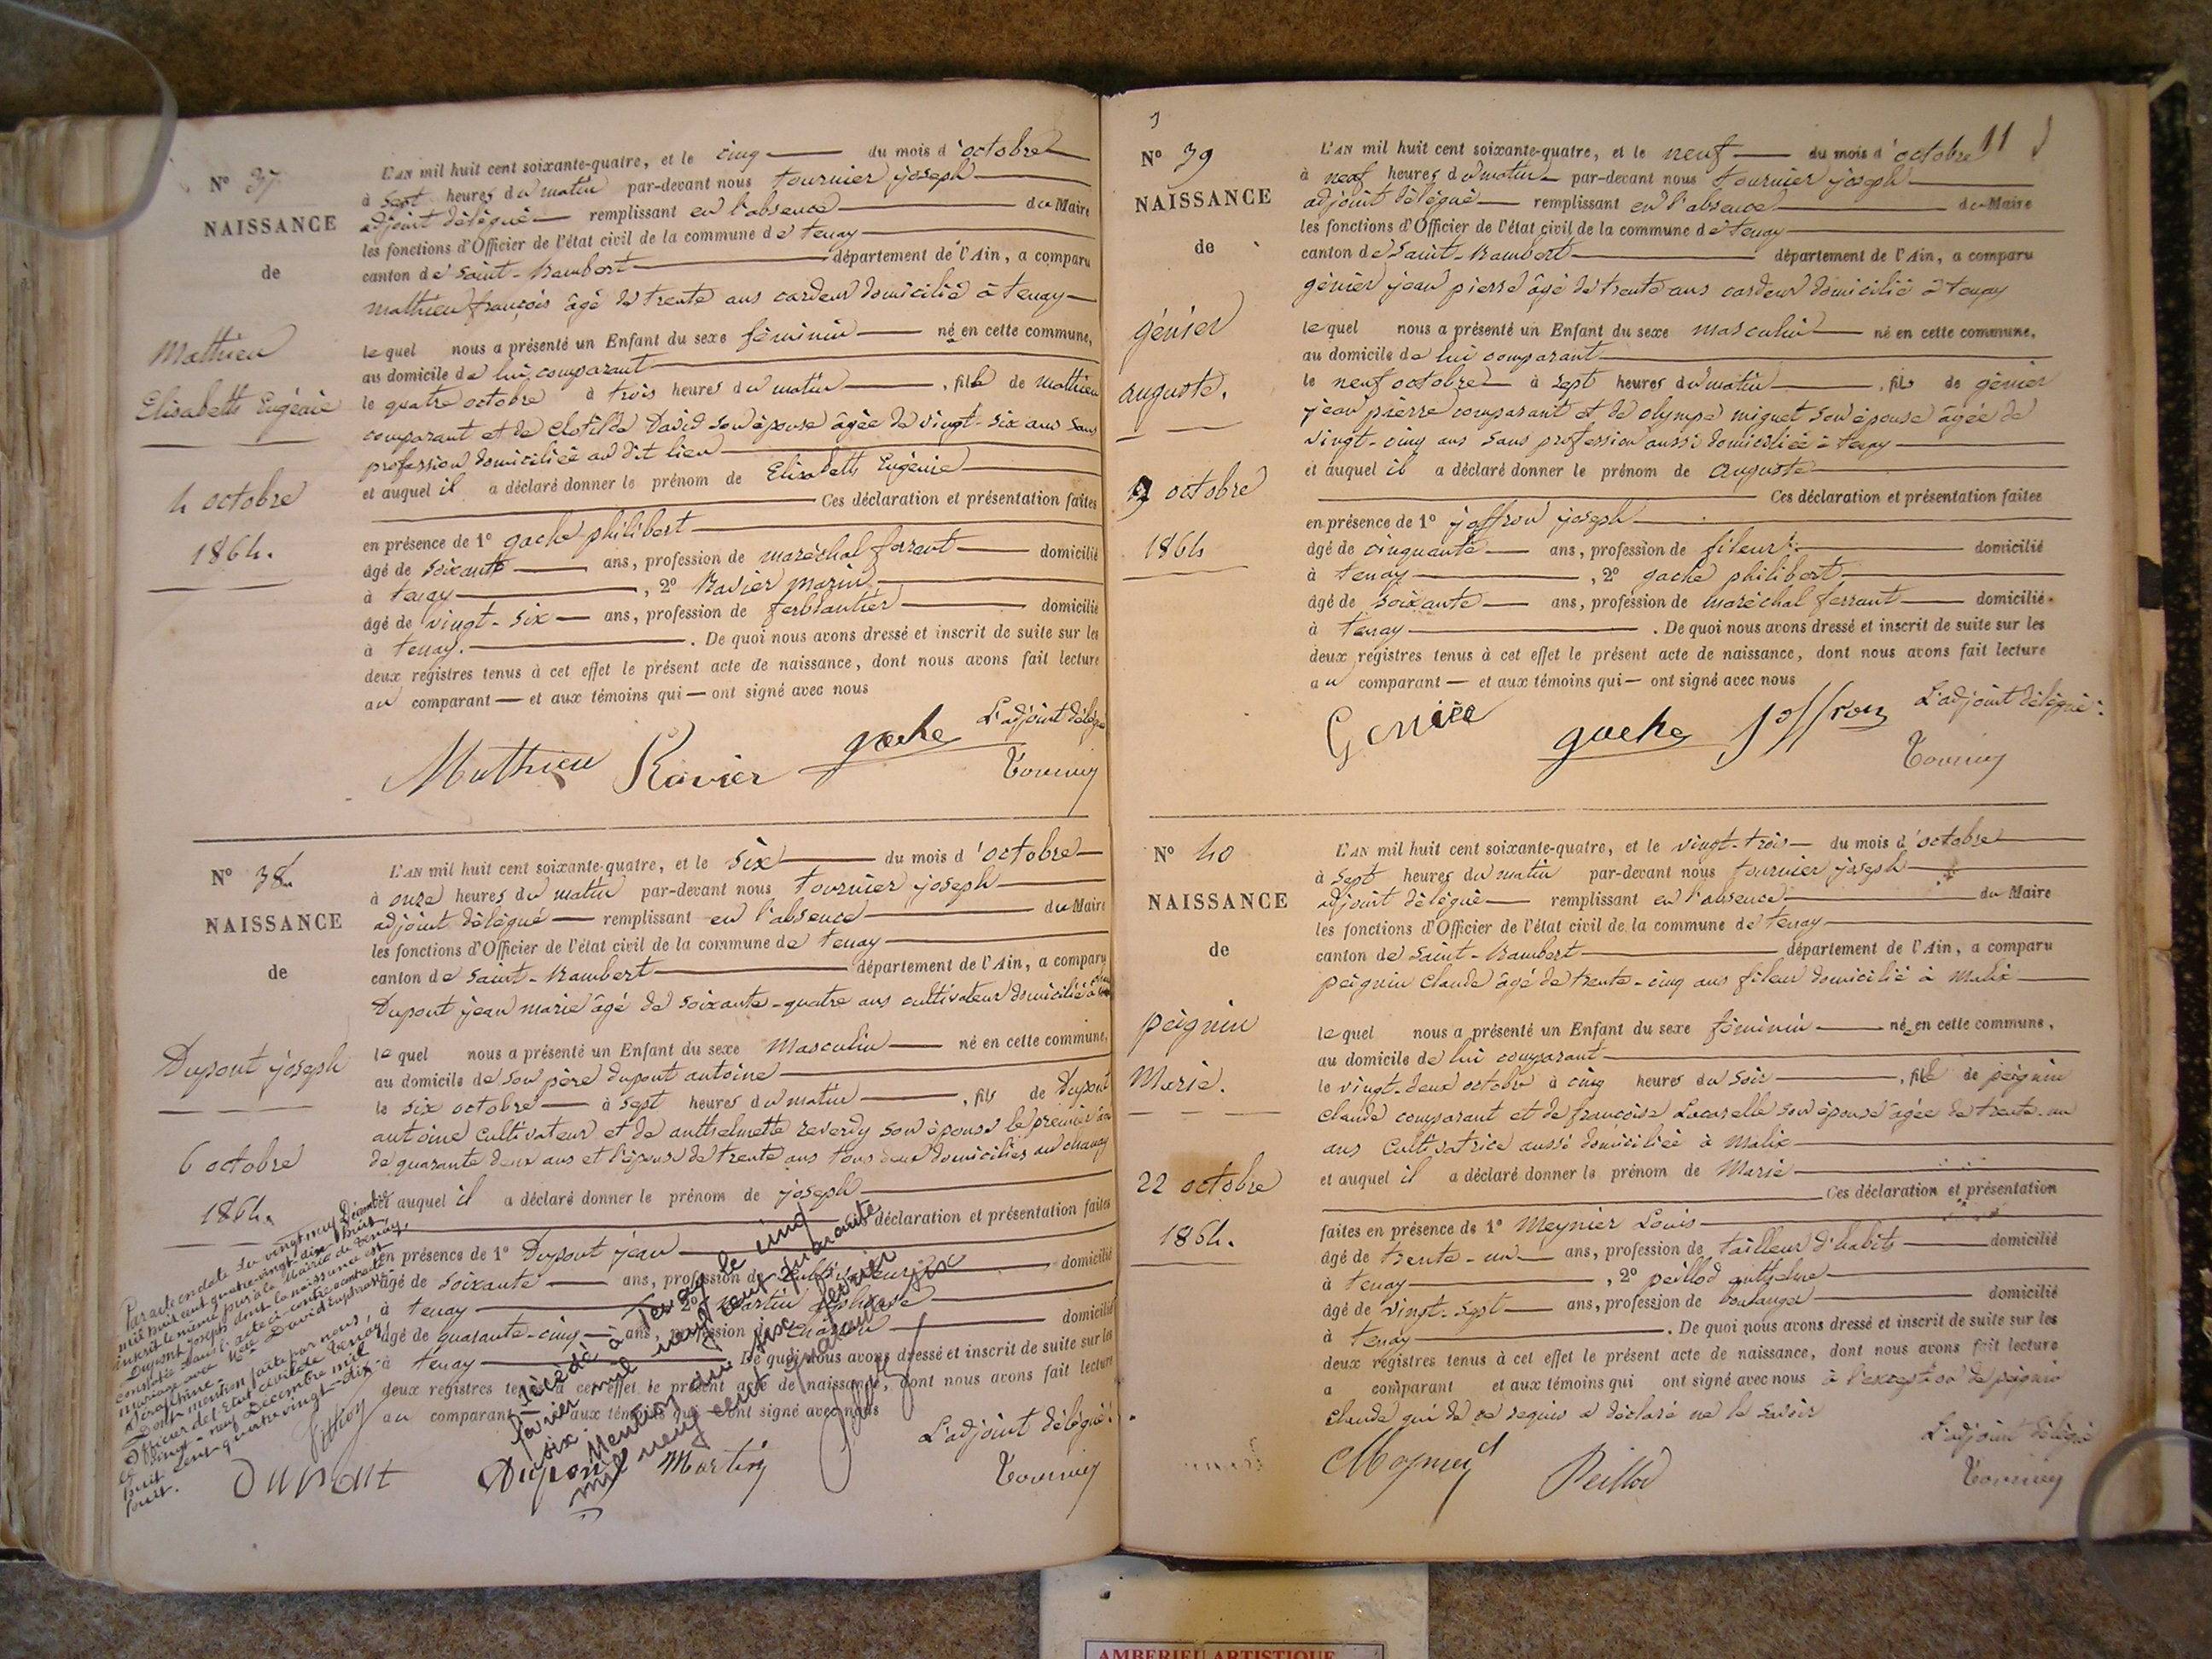 N° 37
NAISSANCE
de
Mathieu
Elisabeth Eugénie
4 octobre
1864.
L'AN mil huit cent soixante-quatre, et le cinq du mois d'octobre
à sept heures du matin par-devant nous tournier joseph
adjoint délégué remplissant en l'absence du Maire
les fonctions d'Officier de l'état civil de la commune de tenay
canton de Saint-Rambert département de l'Ain, a comparu
mathieu françois âgé de trente ans cardeur domicilié à tenay
lequel nous a présenté un Enfant du sexe féminin né en cette commune,
au domicile de lui comparant
le quatre octobre à trois heures du matin, fille de mathieu
comparant et de Clotilde David son épouse âgée de vingt-six ans sans
profession domiciliée au dit lieu
et auquel il a déclaré donner le prénom de Elisabeth Eugénie
Ces déclaration et présentation faites
en présence de 1° gache philibert
âgé de soixante ans, profession de maréchal ferrant domicilié
à tenay, 2° Ravier marin
âgé de vingt-six ans, profession de ferblantier domicilié
à tenay. De quoi nous avons dressé et inscrit de suite sur les
deux registres tenus à cet effet le présent acte de naissance, dont nous avons fait lecture
au comparant — et aux témoins qui — ont signé avec nous
L'adjoint délégué
Mathieu Ravier gache
N° 38
NAISSANCE
de
Dupont joseph
6 octobre
1864.
L'AN mil huit cent soixante-quatre, et le six du mois d'octobre
à onze heures du matin par-devant nous tournier joseph
adjoint délégué remplissant en l'absence du Maire
les fonctions d'Officier de l'état civil de la commune de tenay
canton de Saint-Rambert département de l'Ain, a comparu
Dupont jean marie âgé de soixante-quatre ans cultivateur domicilié à
lequel nous a présenté un Enfant du sexe Masculin né en cette commune,
au domicile de son père dupont antoine
le six octobre à sept heures du matin, fils de Dupont
antoine cultivateur et de anthelmette reverdy son épouse le premier âgé
de quarante deux ans et l'épouse de trente ans tous deux domiciliés au
et auquel il a déclaré donner le prénom de joseph
Ces déclaration et présentation faites
en présence de 1° Dupont jean
âgé de soixante ans, profession de cultivateur domicilié
à tenay 2° Martin
âgé de quarante-cinq ans, profession de domicilié
à tenay De quoi nous avons dressé et inscrit de suite sur les
deux registres tenus à cet effet le présent acte de naissance, dont nous avons fait lecture
au comparant — et aux témoins qui — ont signé avec nous
L'adjoint délégué
Dupont Dupont Martin
Par acte en date du vingt neuf Décembre
mil huit cent quatre-vingt-dix-huit,
inscrit le même jour à la Mairie de Tenay,
Dupont Joseph dont la naissance est
constatée dans l'acte ci-contre a contracté
mariage avec Melle David Euphrasie
Séraphine.
Dont mention faite par nous,
Officier de l'Etat civil de Tenay
le vingt-neuf Décembre mil
huit cent quatre vingt-dix-
huit.
Décédé à Tenay le cinq
février mil neuf cent quarante
six. Mention du six février
mil neuf cent quarante six
11
N° 39
NAISSANCE
de
génier
auguste.
9 octobre
1864
L'AN mil huit cent soixante-quatre, et le neuf du mois d'octobre
à neuf heures du matin par-devant nous tournier joseph
adjoint délégué remplissant en l'absence du Maire
les fonctions d'Officier de l'état civil de la commune de tenay
canton de Saint-Rambert département de l'Ain, a comparu
génier jean pierre âgé de trente ans cardeur domicilié à tenay
lequel nous a présenté un Enfant du sexe masculin né en cette commune,
au domicile de lui comparant
le neuf octobre à sept heures du matin, fils de génier
jean pierre comparant et de olympe miguet son épouse âgée de
vingt-cinq ans sans profession aussi domiciliée à tenay
et auquel il a déclaré donner le prénom de auguste
Ces déclaration et présentation faites
en présence de 1° joffron joseph
âgé de cinquante ans, profession de fileur domicilié
à tenay, 2° gache philibert
âgé de soixante ans, profession de maréchal ferrant domicilié
à tenay. De quoi nous avons dressé et inscrit de suite sur les
deux registres tenus à cet effet le présent acte de naissance, dont nous avons fait lecture
au comparant — et aux témoins qui — ont signé avec nous
L'adjoint délégué
gache Joffron
N° 40
NAISSANCE
de
peignin
Marie.
22 octobre
1864.
L'AN mil huit cent soixante-quatre, et le vingt-trois du mois d'octobre
à sept heures du matin par-devant nous tournier joseph
adjoint délégué remplissant en l'absence du Maire
les fonctions d'Officier de l'état civil de la commune de tenay
canton de Saint-Rambert département de l'Ain, a comparu
peignin Claude âgé de trente-cinq ans fileur domicilié à Malix
lequel nous a présenté un Enfant du sexe féminin née en cette commune,
au domicile de lui comparant
le vingt-deux octobre à cinq heures du soir, fille de peignin
claude comparant et de françoise Lacarelle son épouse âgée de trente-un
ans Cultivatrice aussi domiciliée à Malix
et auquel il a déclaré donner le prénom de Marie
Ces déclaration et présentation
faites en présence de 1° Meynier Louis
âgé de trente-un ans, profession de tailleur d'habits domicilié
à tenay, 2° peillod anthelme
âgé de vingt-sept ans, profession de boulanger domicilié
à tenay. De quoi nous avons dressé et inscrit de suite sur les
deux registres tenus à cet effet le présent acte de naissance, dont nous avons fait lecture
a comparant et aux témoins qui ont signé avec nous à l'exception de peignin
claude qui de ce requis a déclaré ne le savoir
L'adjoint délégué
Peillod
AMBERIEU ARTISTIQUE